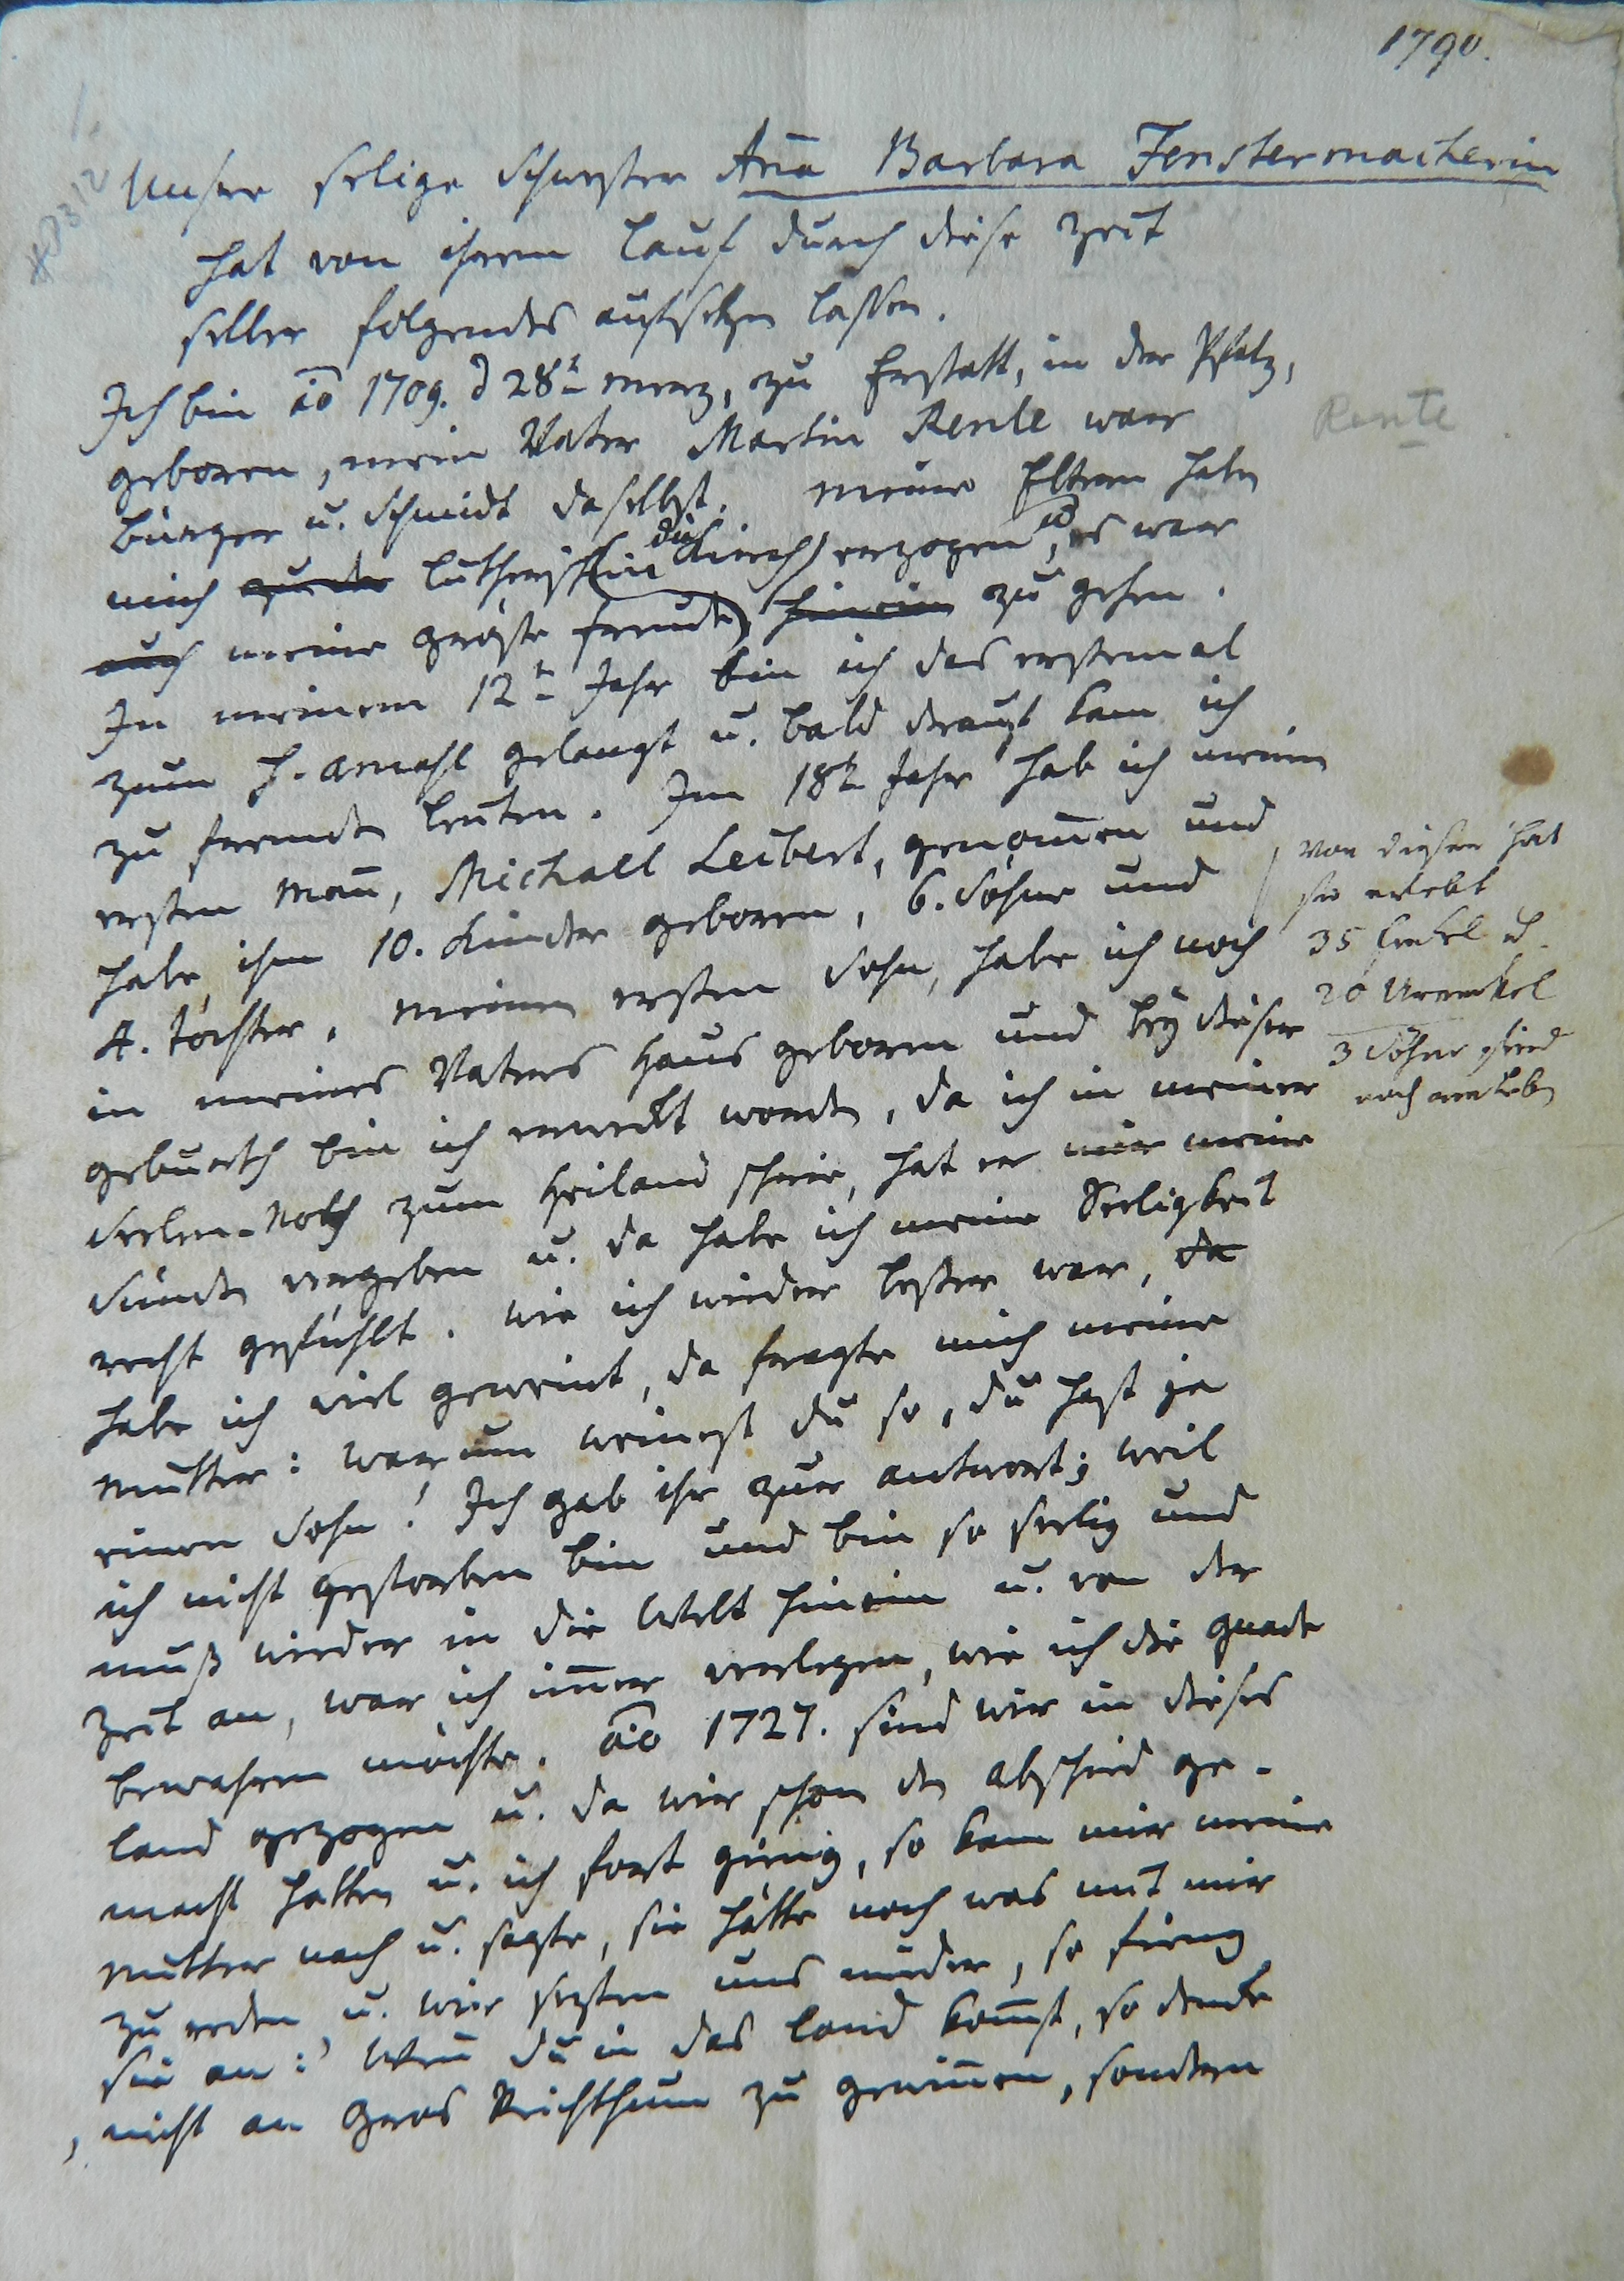 1790.
Unsre selige Schwester Aña Barbara Fenstermacherin
hat von ihrem Lauf durch diese Zeit
selber folgendes aufsetzen lassen.
Ich bin ao 1709. d 28t Merz, zu Erstatt, in der Pfalz,
geboren, mein Vater Martin Rente war
Rente
Bürger u. Schmidt daselbst. Meine Eltern haben
mich zu der Luthersch (in die Kirch) erzogen, u es war
auch meine gröste Freude, hinein zu gehen.
In meinem 12t Jahr bin ich das erstemal
zum h. Amahl gelangt u. bald drauf kam ich
zu fremden Leuten. Im 18t Jahr hab ich meinen
ersten Mañ, Michael Leibert, genom̄en und
habe ihm 10. Kinder geboren, 6. Söhne und
4. Töchter. Meinen ersten Sohn, habe ich noch
von diesen hat
sie erlebt
35 Enkel u.
20 Urenkel
3 Söhne sind
noch am Leben
in meines Vaters Haus geboren und bey dieser
Geburth bin ich erweckt worden, da ich in meiner
Seelen-Noth zum Heiland schrie, hat er mir meine
Sünden vergeben u. da habe ich meine Seeligkeit
recht gefühlt. Wie ich wieder besser war, da
habe ich viel geweint, da fragte mich meine
Mutter: warum weinest du so, du hast ja
einen Sohn! Ich gab ihr zur Antwort; weil
ich nicht gestorben bin und bin so seelig und
muß wieder in die Welt hinein u. von der
Zeit an, war ich im̄er verlegen, wie ich die Gnade
bewahren möchte. ao 1727. sind wir in dieses
Land gezogen u. da wir schon den Abschied ge-
macht hatten u. ich fort gieng, so kam mir meine
Mutter nach u. sagte, sie hätte noch was mit mir
zu reden u. wir sezten uns nieder, so fieng
sie an: Weñ du in das Land kom̄st, so denke
nicht an Gros Reichthum zu gewiñen, sondern